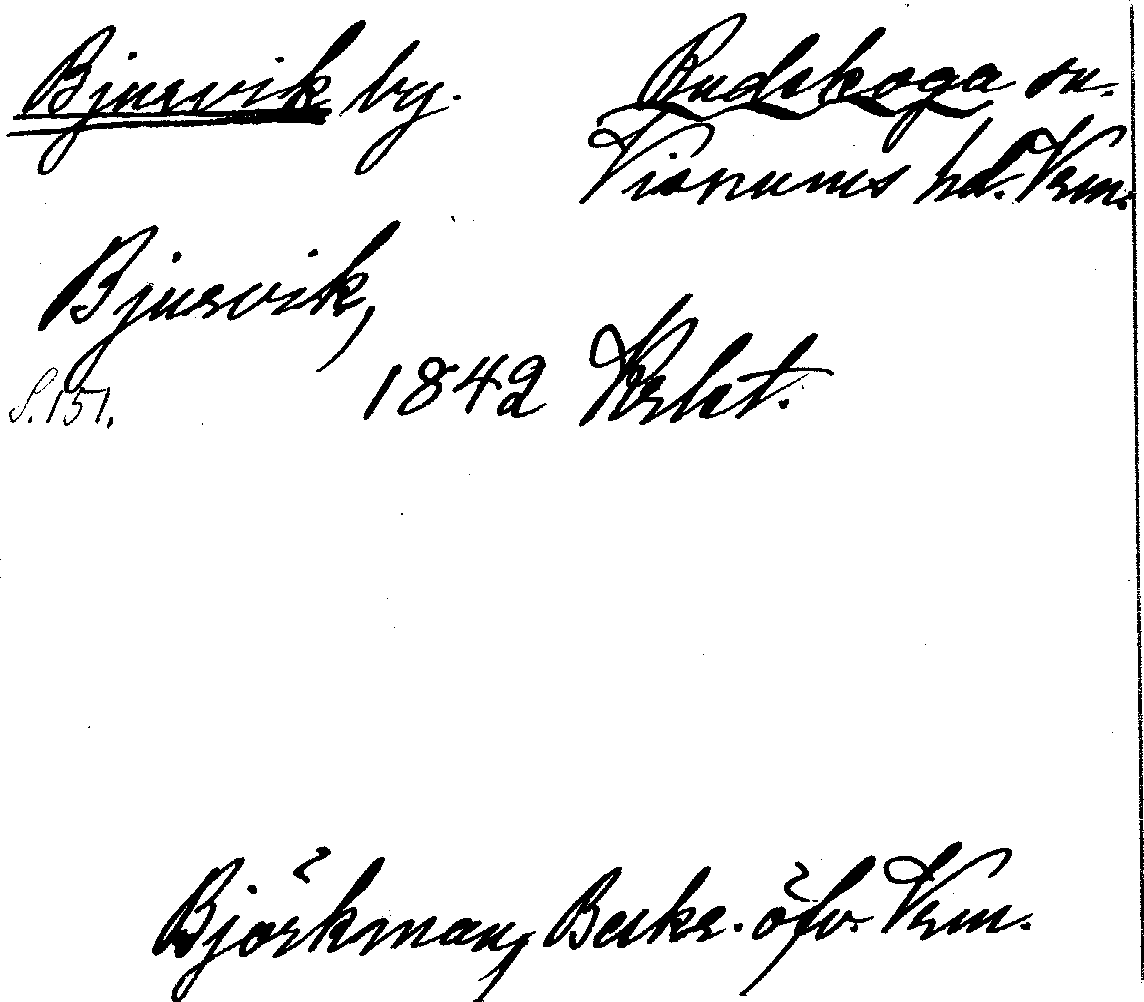 Bjurvik by. Rudskoga sn.
Visnums hd. Vrm.
Bjurvik,
S. 151. 1842 Krlst.
Björkman, Beskr. öfv. Vrm.